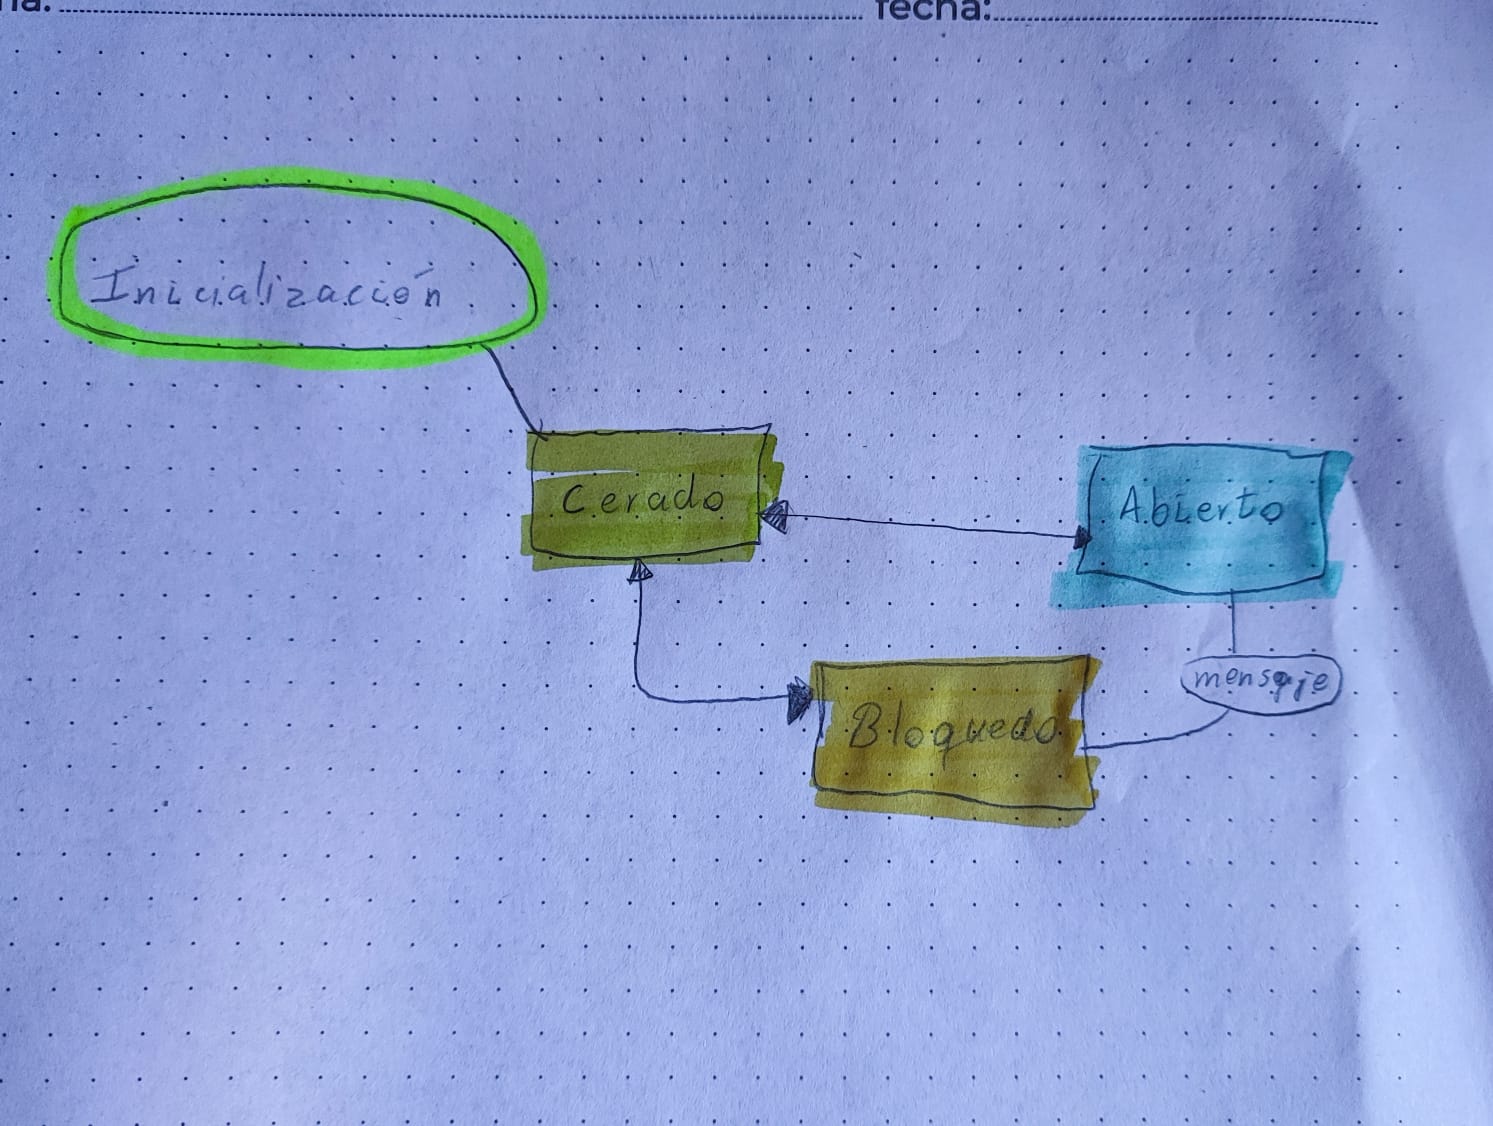 fecha:
Inicialización
Cerado
Abierto
mensaje
Bloquedo